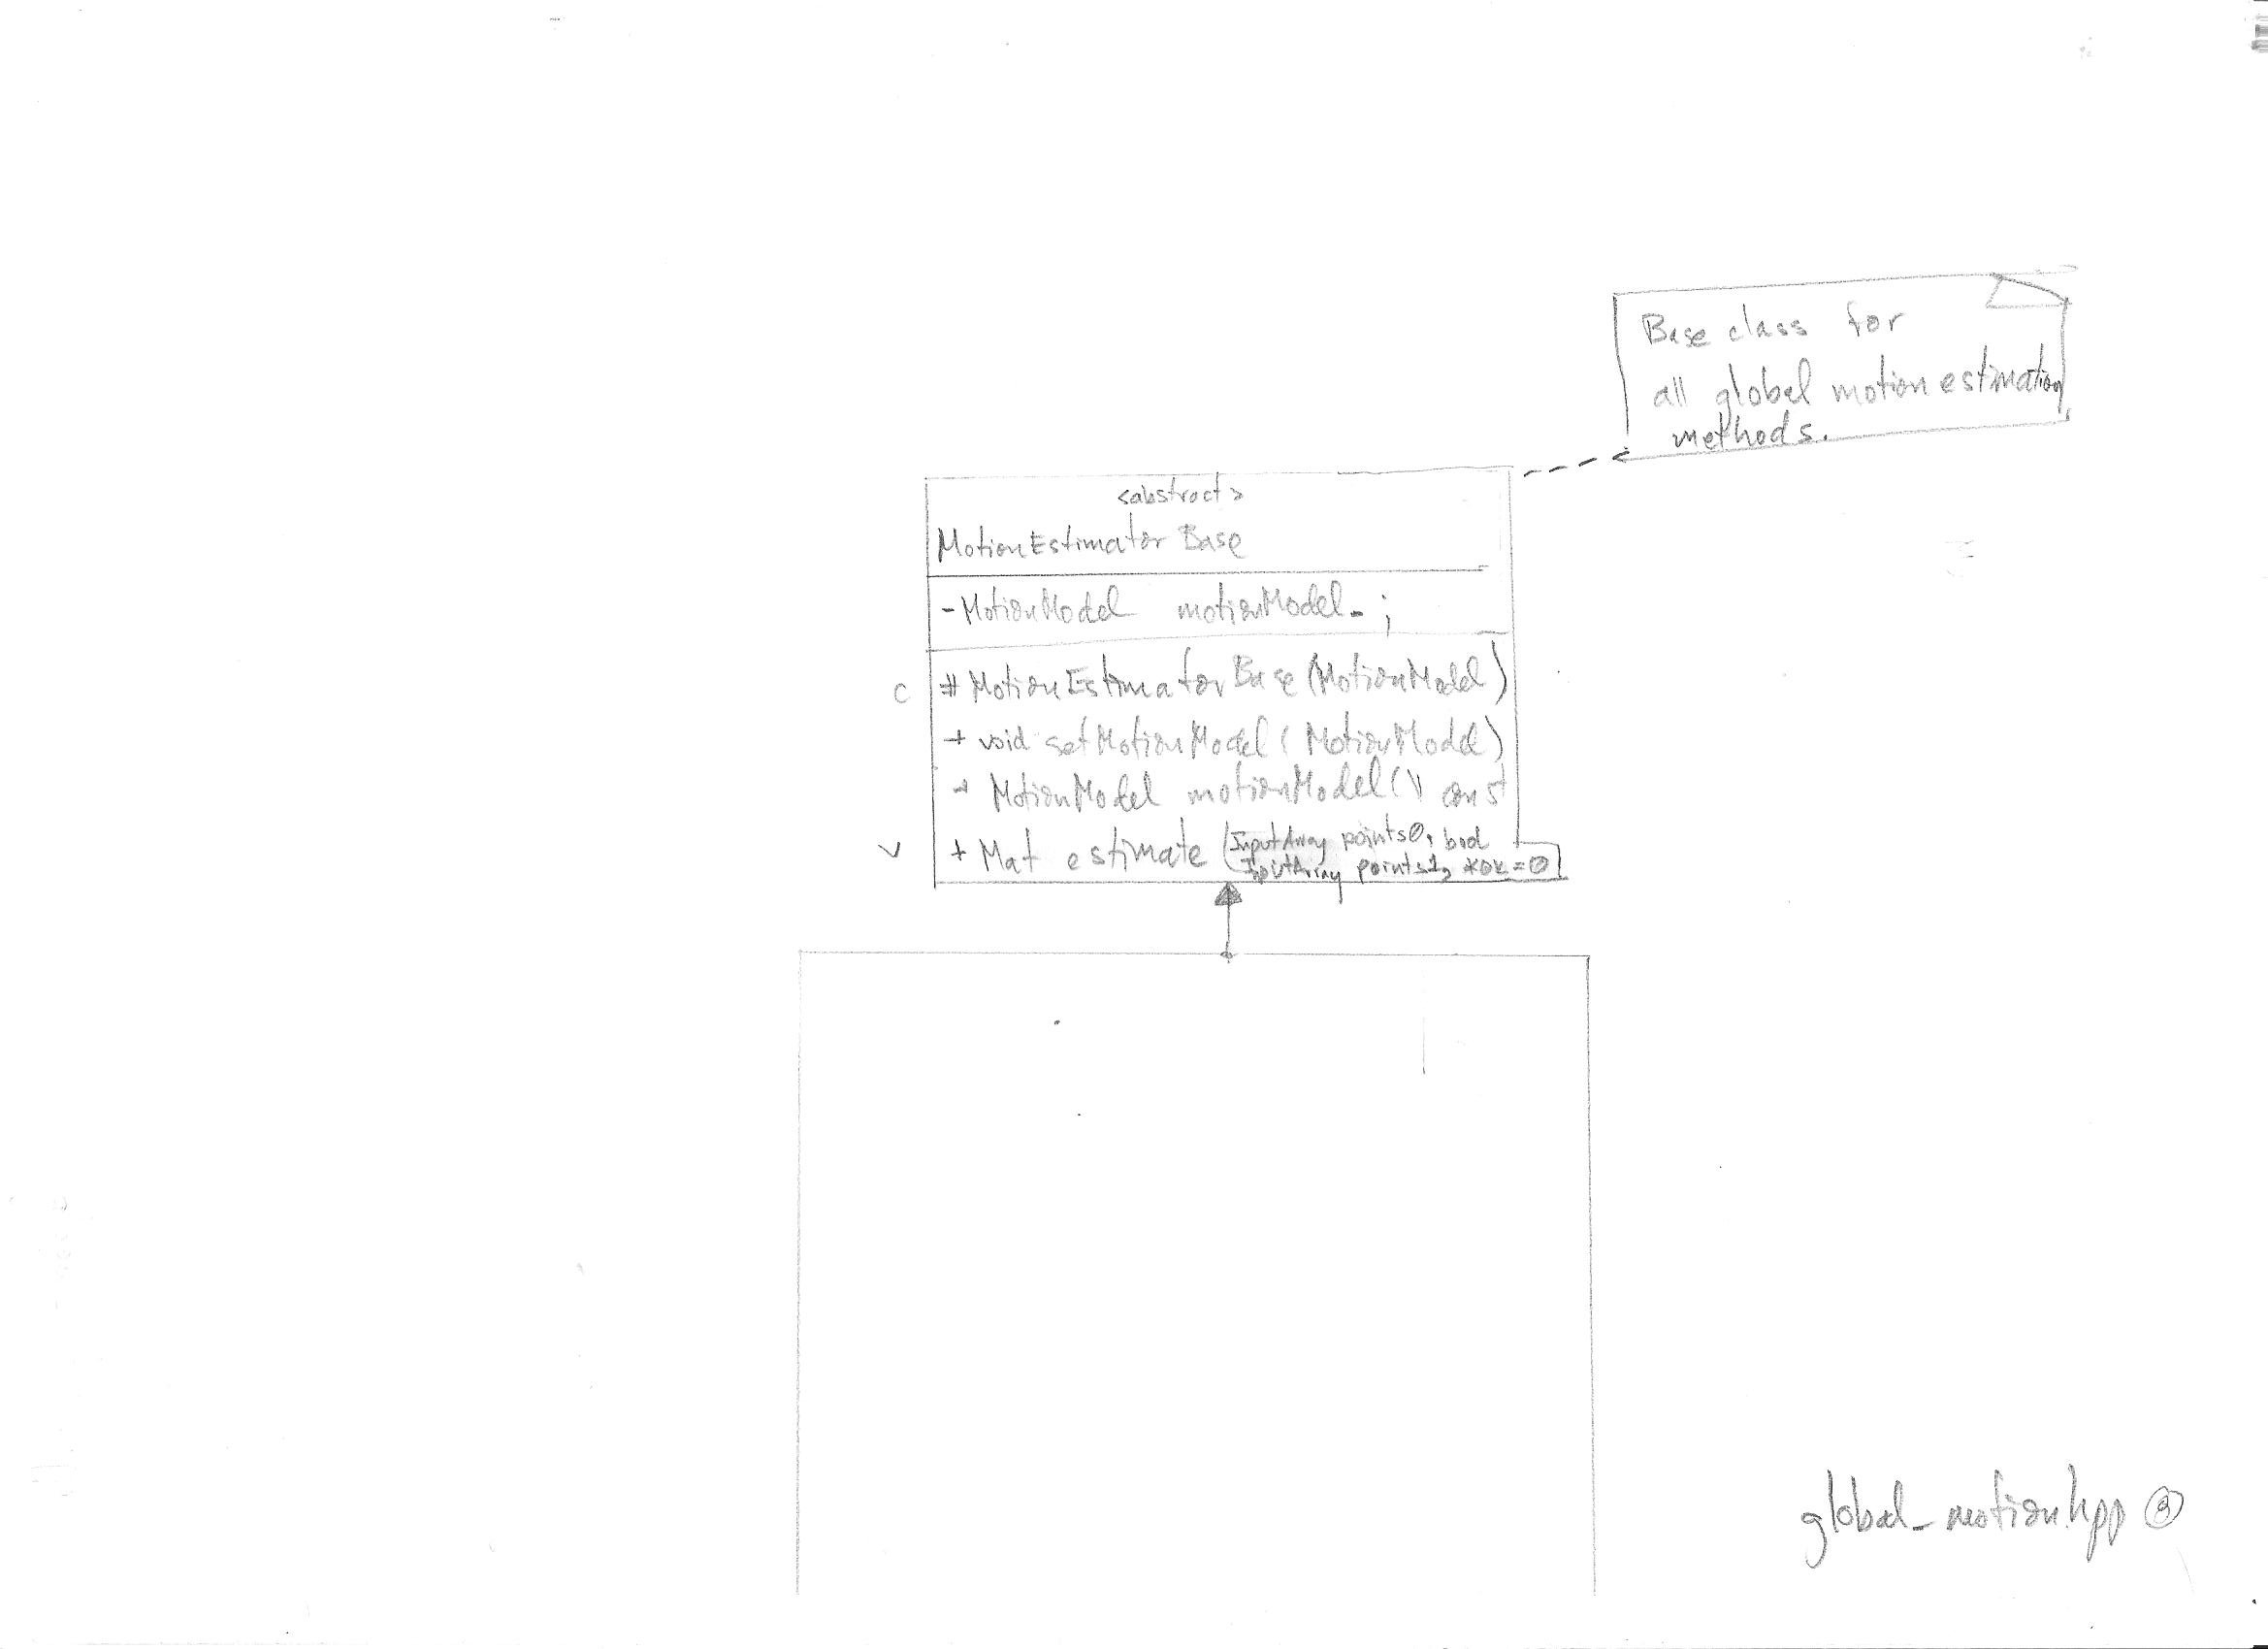 Base class for
all global motion estimation
methods.
<abstract>
MotionEstimator Base
- MotionModel motionModel_ ;
c # MotionEstimatorBase (MotionModel)
+ void setMotionModel ( MotionModel)
+ MotionModel motionModel() const
v + Mat estimate (InputArray points0, bool
InputArray points1, *ok = 0
global_motion.hpp